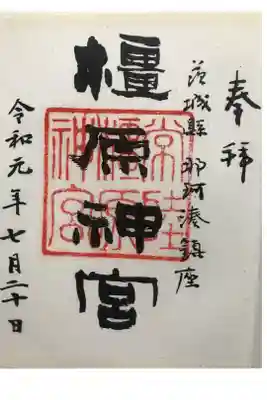 奉拝
茨城縣那珂湊鎮座
橿原神宮
常陸
橿原
神宮
令和元年七月二十日